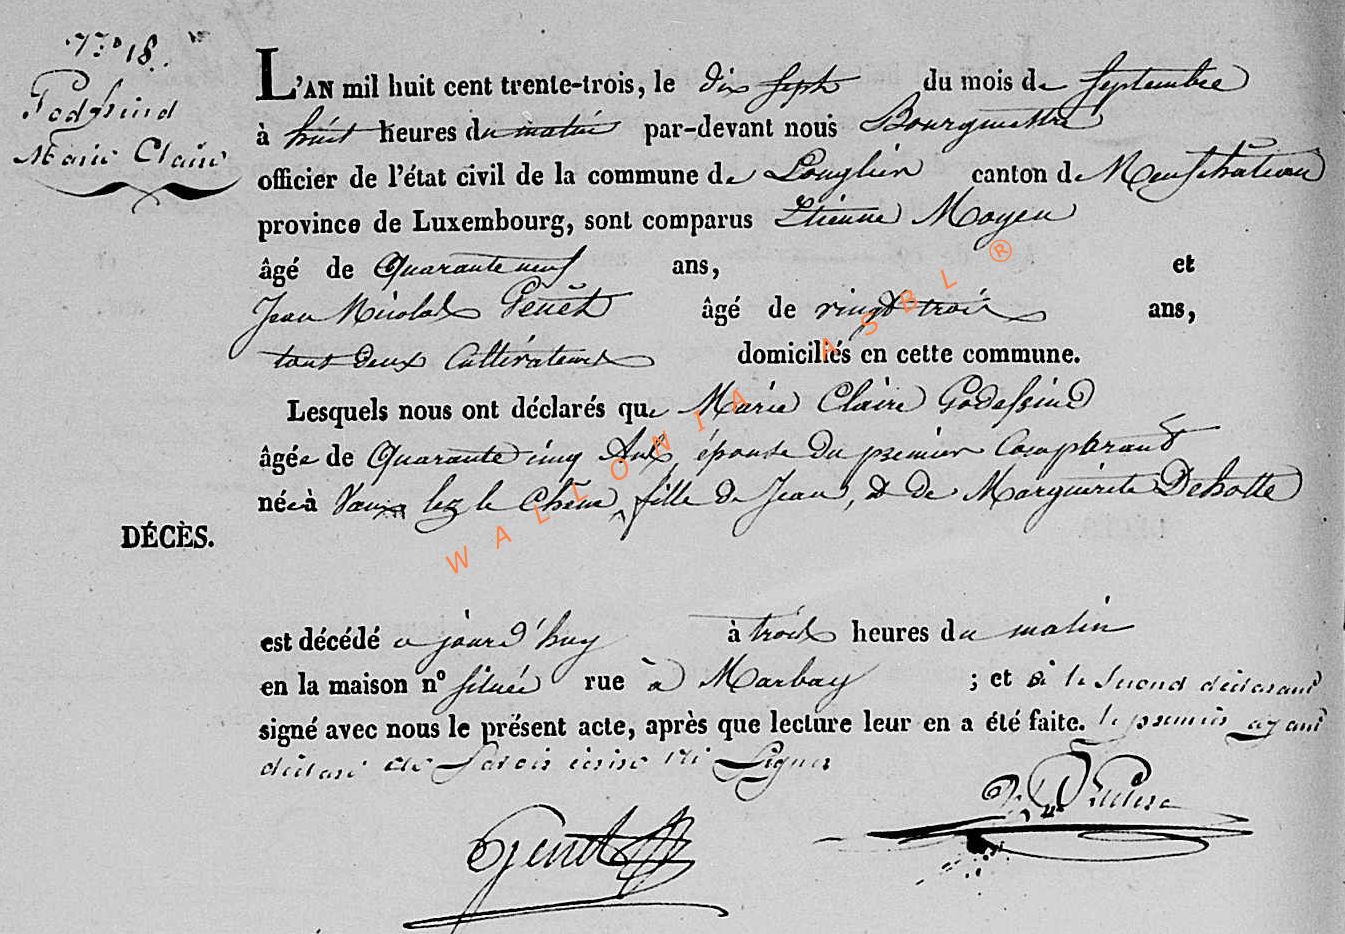 N° 18.
Godfrind
Marie Claire
L'AN mil huit cent trente-trois, le dix sept du mois de septembre
à huit heures du matin par-devant nous Bourgmestre
officier de l'état civil de la commune de Longlier canton de Neufchâteau
province de Luxembourg, sont comparus Etienne Moyen
âgé de Quarante neuf ans, et
Jean Nicolas Genêt âgé de vingt trois ans,
tous deux Cultivateurs domiciliés en cette commune.
Lesquels nous ont déclarés que Marie Claire
âgée de Quarante cinq Ans épouse du premier Comparant
née à Vaux lez le Chêne, fille de Jean, & de Marguerite Dehotte
DÉCÈS.
est décédé ce jourd'huy à trois heures du matin
en la maison n° située rue à Marbay ; et à le second déclarant
signé avec nous le présent acte, après que lecture leur en a été faite. le premier ayant
déclaré ne savoir écrire ni signer
Genet
WALLONIA ASBL ®